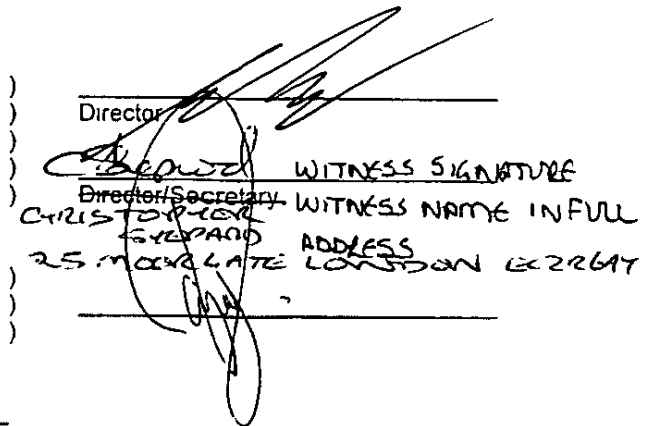 )
) Director
)
) WITNESS SIGNATURE
) Director/Secretary WITNESS NAME IN FULL
CHRISTOPHER
SHEPARD ADDRESS
25 MOORGATE LONDON EC2R 6AY
)
)
)